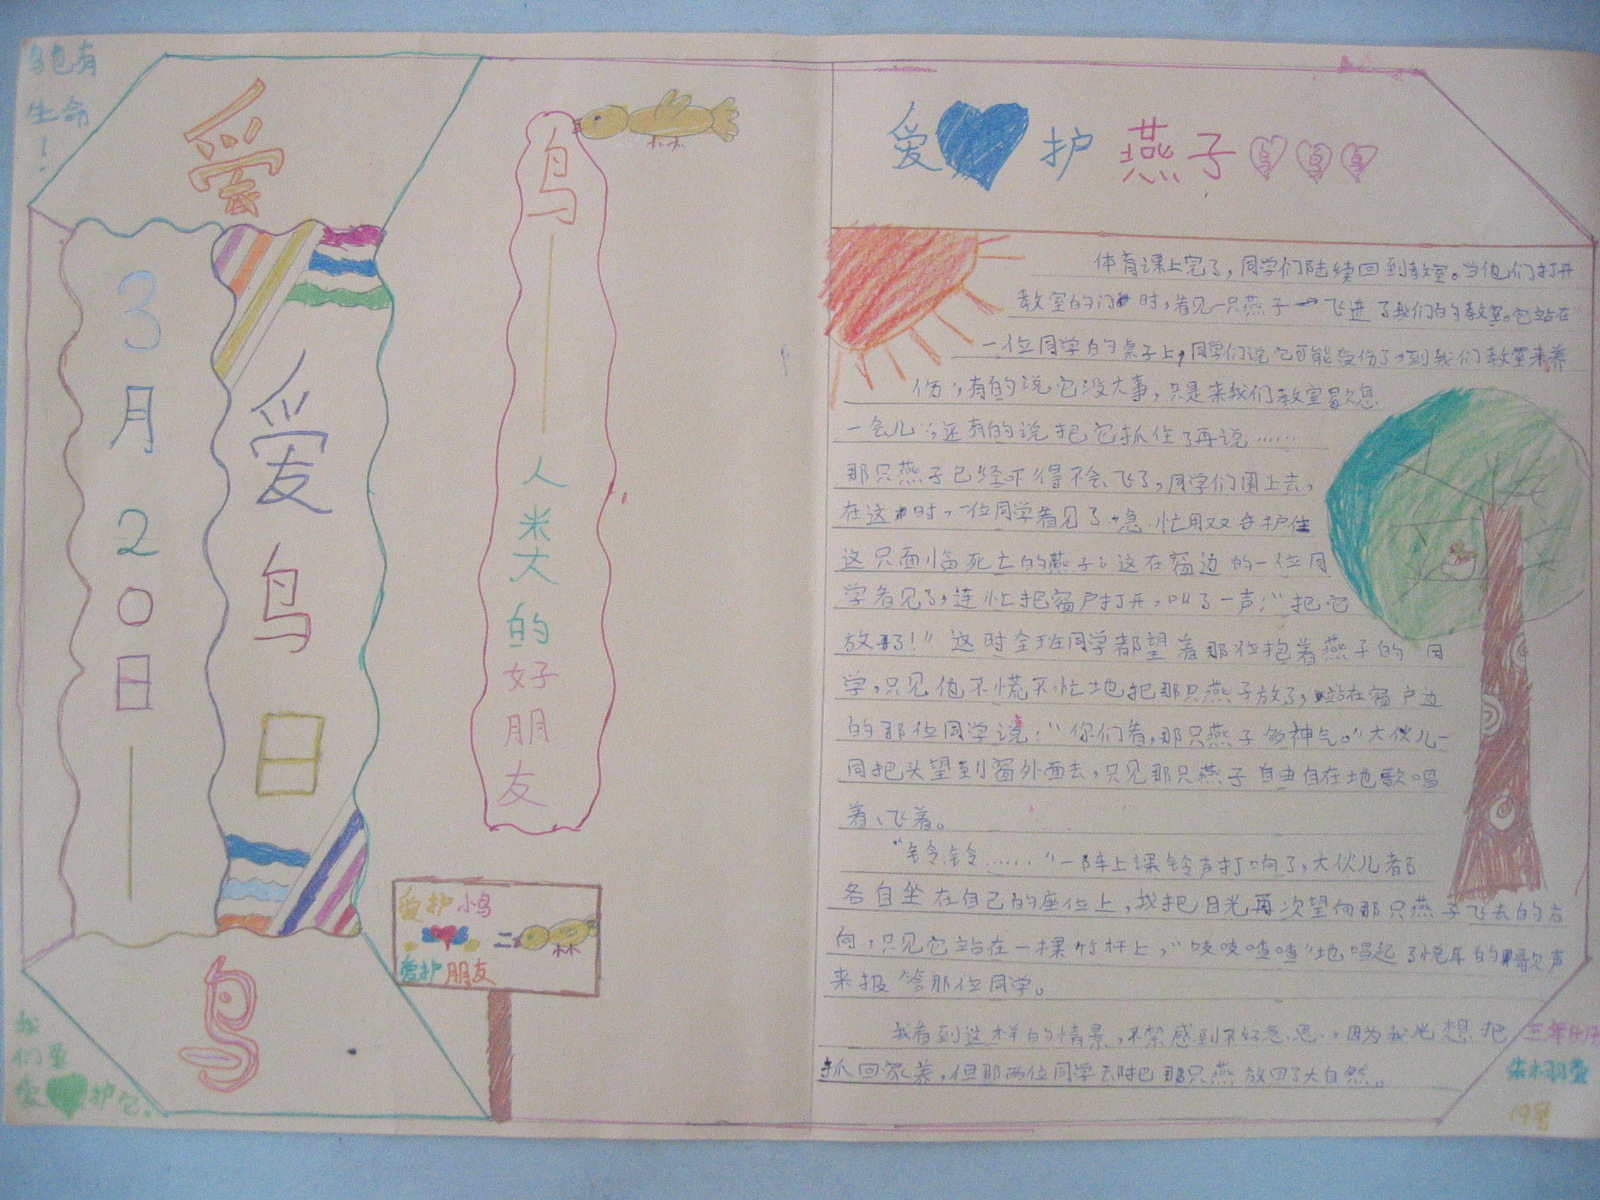 鸟也有
生命
！
爱
3月20日——
爱鸟日
鸟
我
们要
爱护它。
鸟——人类的好朋友
爱护小鸟
二
爱护朋友
爱护燕子鸟鸟鸟
体育课上完了，同学们陆续回到教室。当他们打开
教室的门时，看见一只燕子飞进了我们的教室。它站在
一位同学的桌子上，同学们说它可能受伤了，到我们教室来养
伤；有的说它没大事，只是来我们教室歇息
一会儿；还有的说把它抓住了再说……
那只燕子已经吓得不会飞了，同学们围上去，
在这时，一位同学看见了，急忙用双手护住
这只面临死亡的燕子；这在窗边的一位同
学看见了，连忙把窗户打开，叫了一声：“把它
放了！”这时全班同学都望着那位抱着燕子的同
学，只见他不慌不忙地把那只燕子放了，站在窗户边
的那位同学说：“你们看，那只燕子多神气。”大伙儿一
同把头望到窗外面去，只见那只燕子自由自在地歌唱
着、飞着。
“铃铃……”一阵上课铃声打响了，大伙儿都
各自坐在自己的座位上，我把目光再次望向那只燕子飞去的方
向，只见它站在一棵竹杆上，“吱吱喳喳”地唱起了悦耳的歌声
来报答那位同学。
我看到这样的情景，不禁感到不好意思，因为我光想把
抓回家养，但那两位同学却把那只燕放回了大自然。
19号